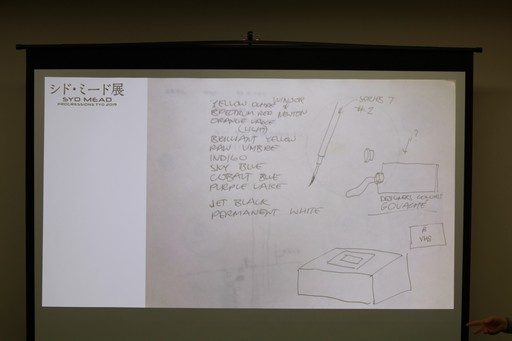 シド・ミード展
SYD MEAD
PROGRESSIONS TYO 2019
YELLOW
WINSOR &
SPECTRUM RED NEWTON
ORANGE LAKE
(LIGHT)
BRILLIANT YELLOW
RAW UMBRE
INDIGO
SKY BLUE
COBALT BLUE
PURPLE LAKE
JET BLACK
PERMANENT WHITE
SERIES 7
#2
?
DESIGNERS
GOUACHE